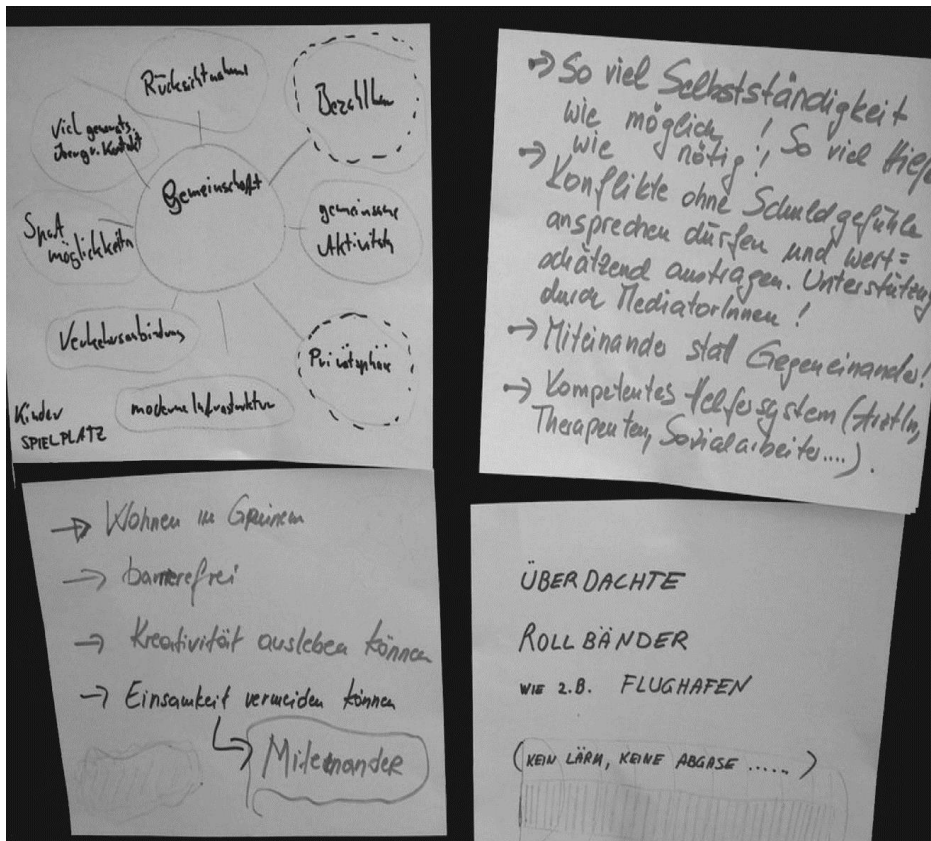 Rücksichtnahme
Bezahlbar
viel generats.
übergr. Kontakt
Gemeinschaft
gemeinsame
Aktivität
Spaß
möglichkeiten
Verkehrsanbindung
Privatsphäre
moderne Infrastruktur
Kinder
SPIELPLATZ
→ So viel Selbstständigkeit
wie möglich! So viel Hilfe
wie nötig!
→ Konflikte ohne Schuldgefühle
ansprechen dürfen und wert=
schätzend austragen. Unterstützung
durch MediatorInnen!
→ Miteinander statt Gegeneinander!
→ Kompetentes Helfersystem (ÄrztIn,
Therapeuten, Sozialarbeiter....).
→ Wohnen im Grünem
→ barrierefrei
→ Kreativität ausleben können
→ Einsamkeit vermeiden können
Miteinander
ÜBERDACHTE
ROLLBÄNDER
WIE Z.B. FLUGHAFEN
(KEIN LÄRM, KEINE ABGASE .....)